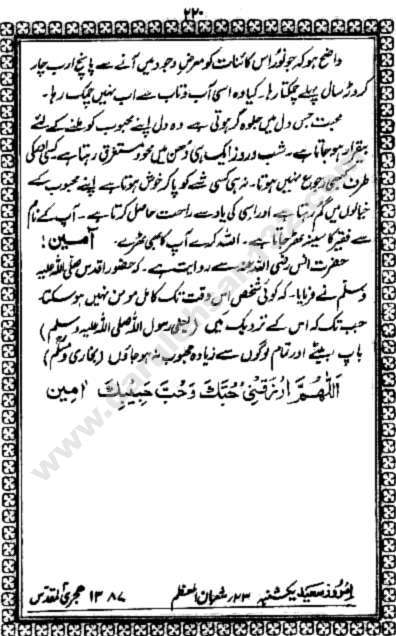 ۲۲۰
واضح ہو کہ جو نور اس کائنات کو معرضِ وجود میں آنے سے پانچ ارب چار
کروڑ سال پہلے چمکتا رہا۔ کیا وہ اسی آب و تاب سے اب نہیں چمک رہا۔
محبت جس دل میں جلوہ گر ہوتی ہے وہ دل اپنے محبوب کو ملنے کے لئے
بیقرار ہو جاتا ہے۔ شب و روز ایک ہی دُھن میں محو و مستغرق رہتا ہے کسی اور کی
طرف کبھی رجوع نہیں ہوتا۔ نہ ہی کسی شے کو پا کر خوش ہوتا ہے اپنے محبوب کے
خیالوں میں گم رہتا ہے اور اسی کی یاد سے راحت حاصل کرتا ہے۔ آپ کے نام
سے فقیر کا سینہ معمور ہو جاتا ہے۔ اللہ کرے آپ کا بھی ٹھہرے۔ آمین!
حضرت انس رضی اللہ عنہ سے روایت ہے۔ کہ حضور اقدس صلی اللہ علیہ
وسلم نے فرمایا۔ کہ کوئی شخص اس وقت تک کامل مومن نہیں ہو سکتا
جب تک کہ اس کے نزدیک میں (یعنی رسول اللہ صلی اللہ علیہ وسلم)
باپ، بیٹے اور تمام لوگوں سے زیادہ محبوب نہ ہو جاؤں (بخاری و مسلم)
اَللّٰهُمَّ ارْزُقْنِیْ حُبَّكَ وَحُبَّ حَبِیْبِكَ اٰمین
امروز سعید یکشنبہ ۲۳ شعبان المعظم ۱۳۸۷ ہجری المقدس